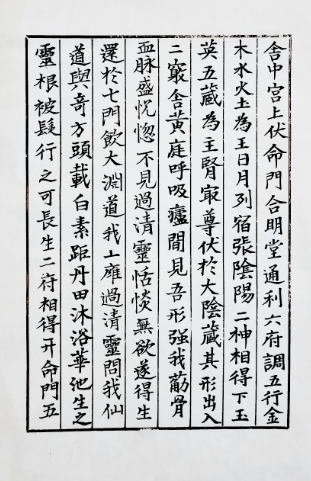 舍中宮上伏命門合明堂通利六府調五行金
木水火土為王日月列宿張陰陽二神相得下玉
英五藏為主腎㝡尊伏於大陰藏其形出入
二竅舍黃庭呼吸廬間見吾形强我葋骨
血脉盛恍惚不見過清靈恬惔無欲遂得生
還於七門飲大淵道我玄雍過清靈問我仙
道與奇方頭載白素距丹田沐浴華池生之
靈根被髮行之可長生二府相得开命門五